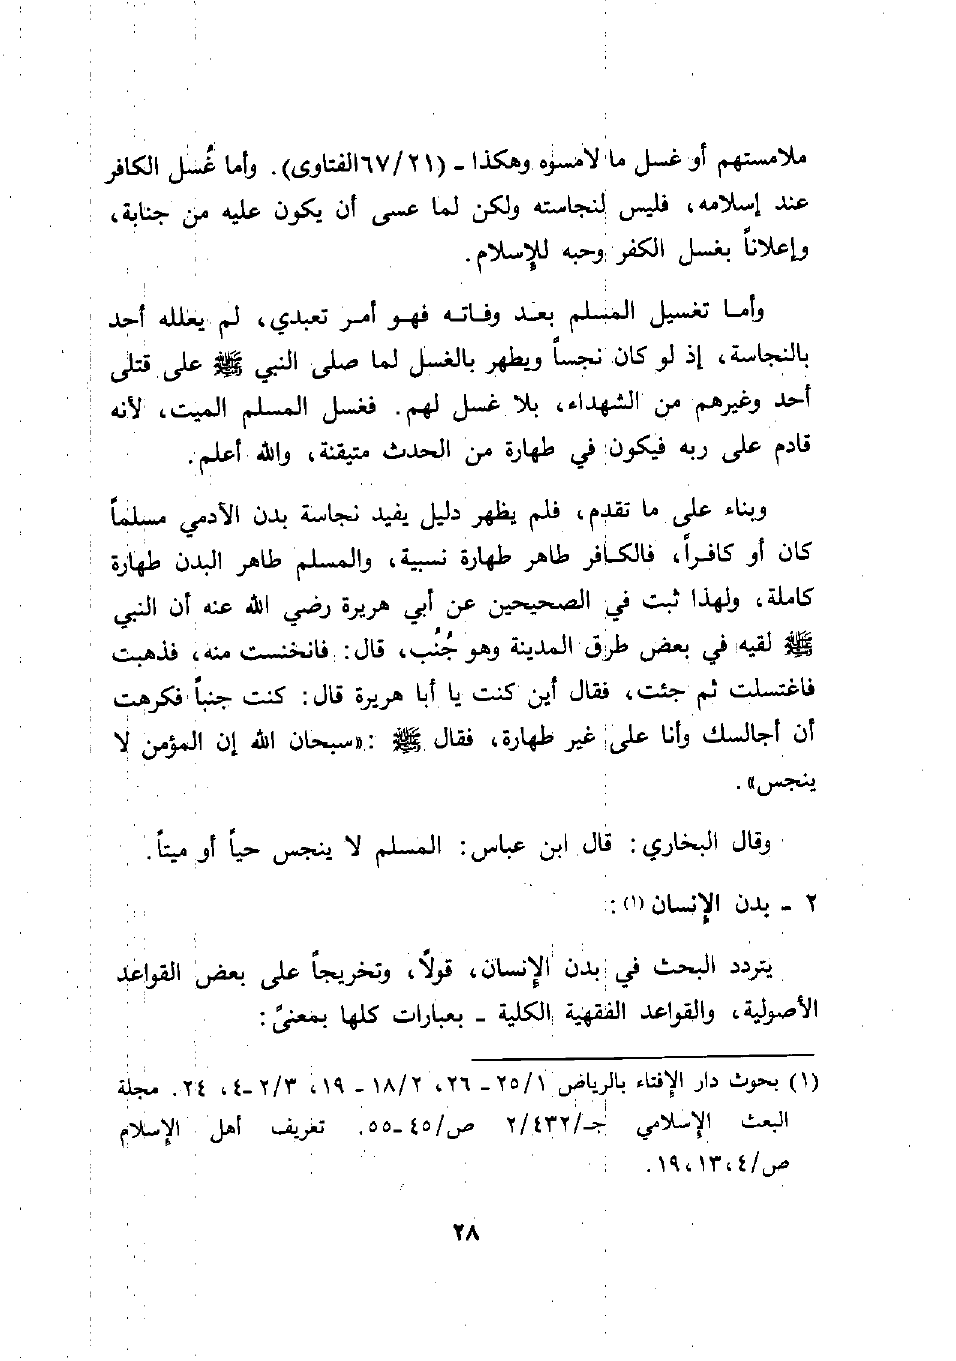 ملامستهم أو غسل ما لامسوه وهكذا ـ (٦٧/٢١الفتاوى). وأما غُسل الكافر
عند إسلامه، فليس لنجاسته ولكن لما عسى أن يكون عليه من جنابة،
وإعلاناً بغسل الكفر وحبه للإسلام.
وأما تغسيل المسلم بعد وفاته فهو أمر تعبدي، لم يعلله أحد
بالنجاسة، إذ لو كان نجساً ويطهر بالغسل لما صلى النبي ﷺ على قتلى
أحد وغيرهم من الشهداء، بلا غسل لهم. فغسل المسلم الميت، لأنه
قادم على ربه فيكون في طهارة من الحدث متيقنة، والله أعلم.
وبناء على ما تقدم، فلم يظهر دليل يفيد نجاسة بدن الآدمي مسلماً
كان أو كافراً، فالكافر طاهر طهارة نسبية، والمسلم طاهر البدن طهارة
كاملة، ولهذا ثبت في الصحيحين عن أبي هريرة رضي الله عنه أن النبي
ﷺ لقيه في بعض طرق المدينة وهو جُنُب، قال: فانخنست منه، فذهبت
فاغتسلت ثم جئت، فقال أين كنت يا أبا هريرة قال: كنت جنباً فكرهت
أن أجالسك وأنا على غير طهارة، فقال ﷺ: «سبحان الله إن المؤمن لا
ينجس».
وقال البخاري: قال ابن عباس: المسلم لا ينجس حياً أو ميتاً.
٢ ـ بدن الإنسان (١):
يتردد البحث في بدن الإنسان، قولًا، وتخريجاً على بعض القواعد
الأصولية، والقواعد الفقهية الكلية ـ بعبارات كلها بمعنىً:
(١) بحوث دار الإفتاء بالرياض ٢٥/١ ـ ٢٦، ١٨/٢ ـ ١٩، ٢/٣ ـ٤، ٢٤. مجلة
البعث الإسلامي جـ/٢/٤٣٢ ص/٤٥ ـ٥٥. تغريف أهل الإسلام
ص/٤، ١٣، ١٩.
٢٨